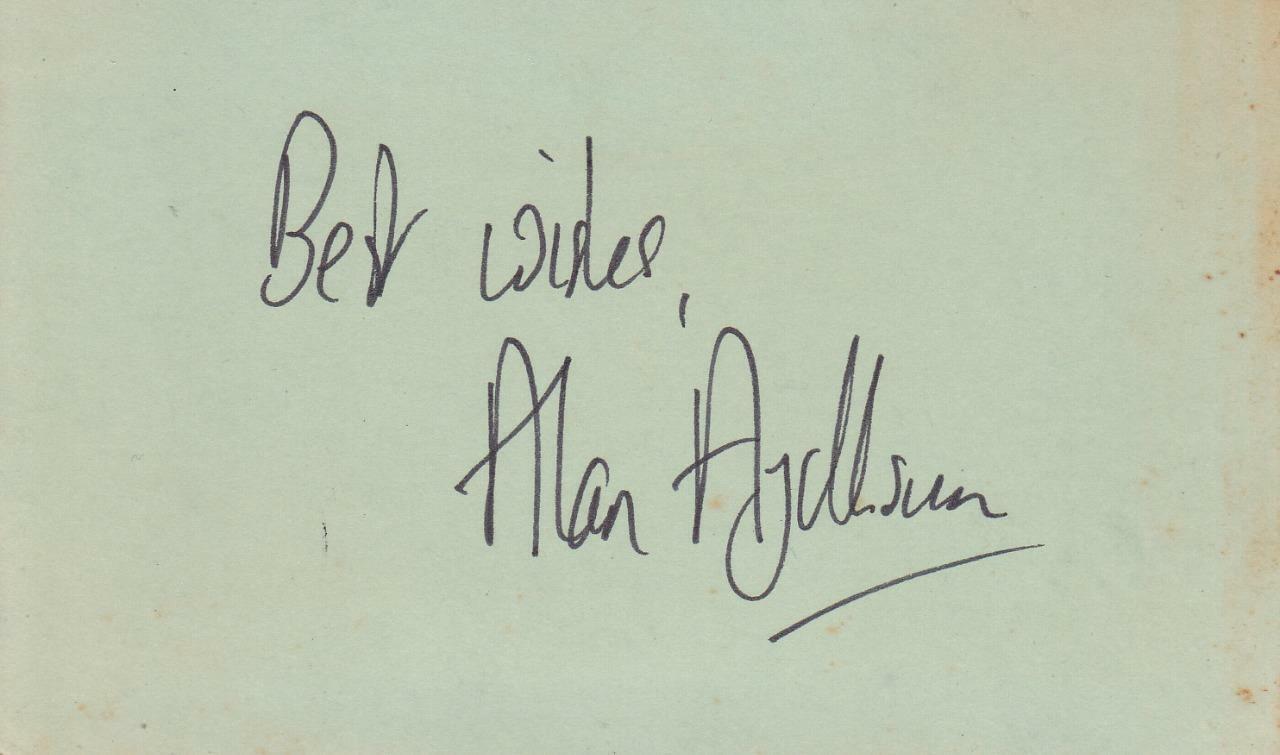 Best wishes,
Alan Ayckbourn